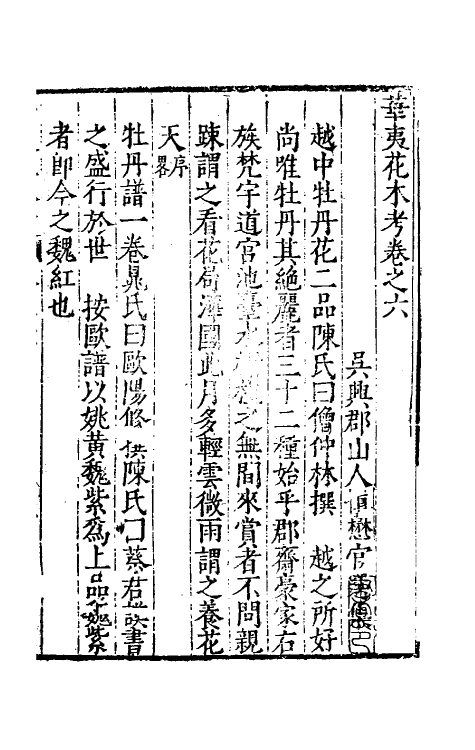 華夷花木考卷之六
吳興郡山人慎懋官選集
越中牡丹花二品陳氏曰僧仲林撰　越之所好
尚唯牡丹其絶麗者三十二種始乎郡齋豪家右
族梵宇道宮池臺水榭植之無間來賞者不問親
踈謂之看花局澤國此月多輕雲微雨謂之養花
天序畧
牡丹譜一卷晁氏曰歐陽修撰陳氏曰蔡君謨書
之盛行於世　按歐譜以姚黄魏紫爲上品今魏紫
者卽今之魏紅也